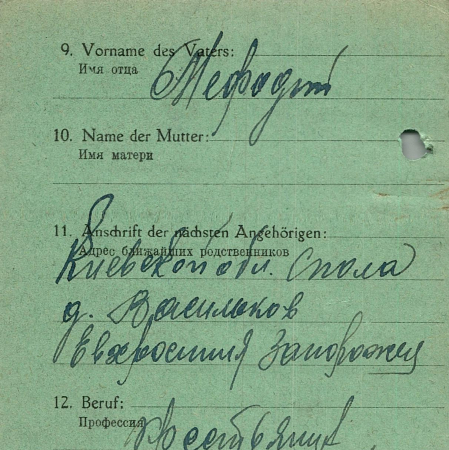 9. Vorname des Vaters:
Имя отца
Мефодий
10. Name der Mutter:
Имя матери
11. Anschrift der nächsten Angehörigen:
Адрес ближайших родственников
Киевской обл. Спола
д. Васильков
Запорожец
12. Beruf:
Профессия